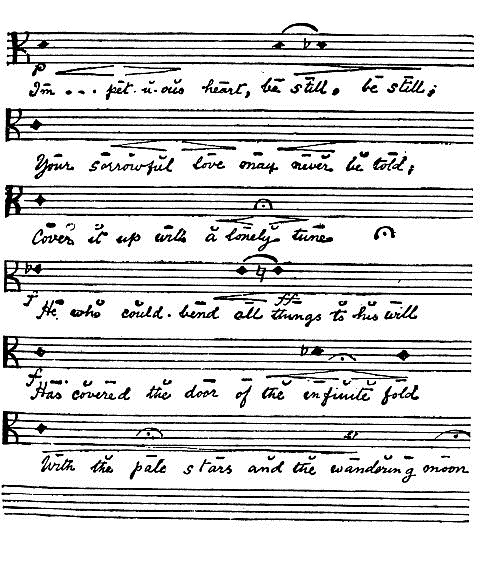 Im... pet-u-ous heart, be still, be still;
Your sorrowful love may never be told;
Cover it up with a lonely tune
He who could bend all things to his will
Has covered the door of the infinite fold
With the pale stars and the wandering moon